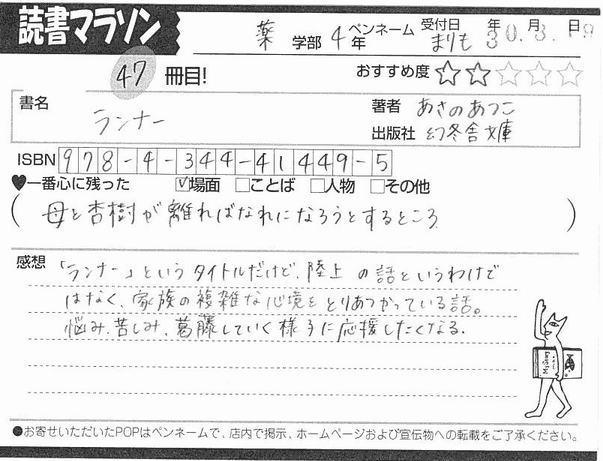 読書マラソン
薬 学部 4年 ペンネーム まりも 受付日 30年 3月 19日
47 冊目!
おすすめ度 ★★☆☆☆
書名 ランナー
著者 あさのあつこ
出版社 幻冬舎文庫
ISBN 978-4-344-41449-5
♥一番心に残った ☑場面 □ことば □人物 □その他
(母と杏樹が離ればなれになろうとするところ)
感想 「ランナー」というタイトルだけど、陸上の話というわけで
はなく、家族の複雑な心境をとりあつかっている話。
悩み、苦しみ、葛藤していく様子に応援したくなる。
●お寄せいただいたPOPはペンネームで、店内で掲示、ホームページおよび宣伝物への転載をご了承ください。